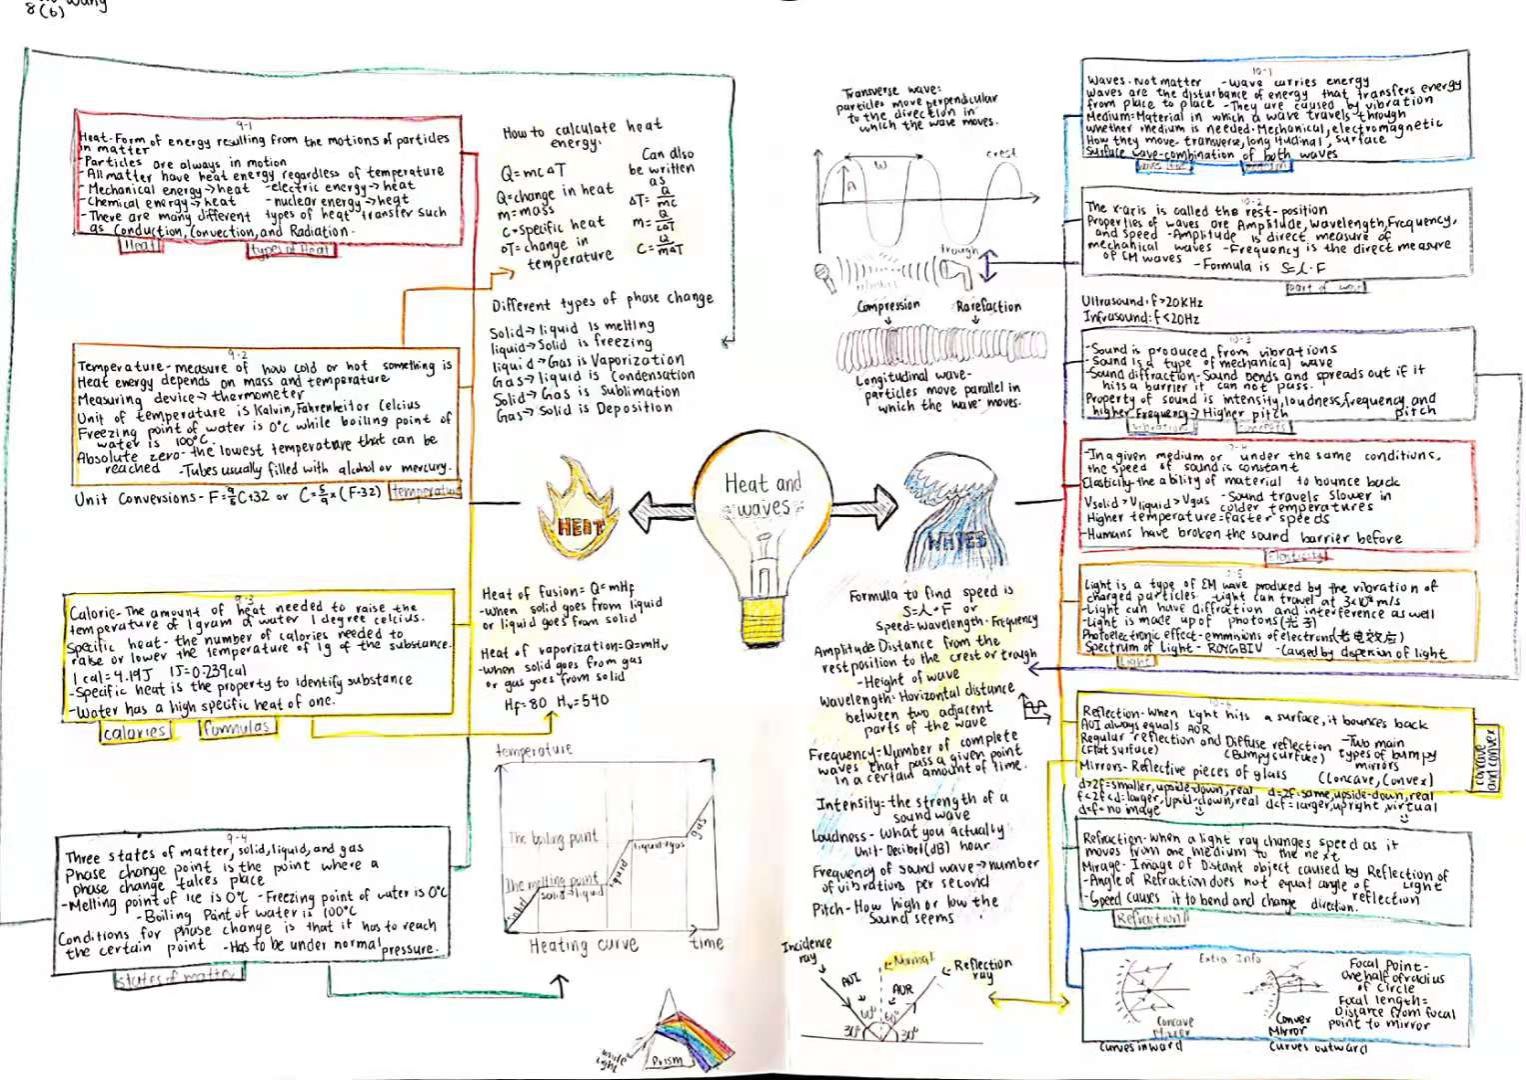 8(6)
9-1
Heat-Form of energy resulting from the motions of particles
in matter
-Particles are always in motion
-All matter have heat energy regardless of temperature
-Mechanical energy→heat -electric energy→heat
-Chemical energy→heat -nuclear energy→heat
-There are many different types of heat transfer such
as Conduction, Convection, and Radiation.
Heat types of Heat
How to calculate heat
energy:
Q=mcΔT
Q=change in heat
m=mass
C=specific heat
ΔT=change in
temperature
Can also
be written
as
ΔT=Q/mc
m=Q/cΔT
C=Q/mΔT
Different types of phase change
Solid→liquid is melting
liquid→Solid is freezing
liquid→Gas is Vaporization
Gas→liquid is Condensation
Solid→Gas is Sublimation
Gas→Solid is Deposition
9-2
Temperature-measure of how cold or hot something is
Heat energy depends on mass and temperature
Measuring device→thermometer
Unit of temperature is Kalvin, Fahrenheit or Celcius
Freezing point of water is 0°C while boiling point of
water is 100°C.
Absolute zero-the lowest temperature that can be
reached -Tubes usually filled with alcohol or mercury.
Unit Conversions- or C=5/9×(F-32) temperature
9-3
Calorie-The amount of heat needed to raise the
temperature of 1gram of water 1 degree celcius.
Specific heat-the number of calories needed to
raise or lower the temperature of 1g of the substance.
1 cal=4.19J 1J=0.239cal
-Specific heat is the property to identify substance
-Water has a high specific heat of one.
calories formulas
Heat of fusion=Q=mHf
-when solid goes from liquid
or liquid goes from solid
Heat of vaporization=Q=mHv
-when solid goes from gas
or gas goes from solid
Hf=80 Hv=540
9-4
Three states of matter, solid, liquid, and gas
Phase change point is the point where a
phase change takes place
-Melting point of ice is 0°C -Freezing point of water is 0°C
-Boiling Point of water is 100°C
Conditions for phase change is that it has to reach
the certain point -Has to be under normal pressure.
states of matter
temperature
The boiling point
liquid+gas
gas
The melting point
solid+liquid
liquid
Solid
Heating curve time
Prism
Heat and
waves
HEAT
WAVES
Transverse wave:
particles move perpendicular
to the direction in
which the wave moves.
W
crest
A
trough
Compression Rarefaction
Longitudinal wave-
particles move parallel in
which the wave moves.
Formula to find speed is
S=λ·F or
Speed=wavelength·Frequency
Amplitude-Distance from the
rest position to the crest or trough
-Height of wave
Wavelength-Horizontal distance
between two adjacent
parts of the wave
Frequency=Number of complete
waves that pass a given point
in a certain amount of time.
Intensity=the strength of a
sound wave
Loudness-What you actually
Unit-Decibel(dB) hear
Frequency of sound wave→number
of vibrations per second
Pitch-How high or low the
Sound seems
Incidence
ray
Normal
Reflection
ray
AOI AOR
60° 60°
30° 30°
10-1
Waves-Not matter -Wave carries energy
Waves are the disturbance of energy that transfers energy
from place to place -They are caused by vibration
Medium=Material in which a wave travels through
whether medium is needed-Mechanical, electromagnetic
How they move-transverse, longitudinal, surface
Surface wave-combination of both waves
10-2
The x-axis is called the rest-position
Properties of waves are Amplitude, Wavelength, Frequency,
and Speed -Amplitude is direct measure of
mechanical waves -Frequency is the direct measure
of EM waves -Formula is S=λ·F
Ultrasound: f>20KHz
Infrasound: f<20Hz
10-3
-Sound is produced from vibrations
-Sound is a type of mechanical wave
-Sound diffraction-Sound bends and spreads out if it
hits a barrier it can not pass.
Property of sound is intensity, loudness, frequency, and
higher Frequency→Higher pitch pitch
vibration concepts
-In a given medium or under the same conditions,
the speed of sound is constant
Elasticity-the ability of material to bounce back
Vsolid>Vliquid>Vgas -Sound travels slower in
colder temperatures
Higher temperature=faster speeds
-Humans have broken the sound barrier before
elasticity
Light is a type of EM wave produced by the vibration of
charged particles -Light can travel at 3×10⁸ m/s
-Light can have diffraction and interference as well
-Light is made up of photons(光子)
Photoelectronic effect-emmisions of electrons
Spectrum of Light- ROYGBIV -Caused by dispersion of light
light
10-6
Reflection-When Light hits a surface, it bounces back
AOI always equals AOR
Regular reflection and Diffuse reflection -Two main
(Flat surface) (Bumpy surface) types of bumpy
mirrors
Mirrors-Reflective pieces of glass (Concave, Convex)
concave
and convex
d>2f=smaller, upside-down, real d=2f=same, upside-down, real
f<2f<d=larger, upsid-down, real d<f=larger, upright, virtual
d=f=no image
Refraction-When a light ray changes speed as it
moves from one medium to the next
Mirage-Image of Distant object caused by Reflection of
Light
-Angle of Refraction does not equal angle of
reflection
-Speed causes it to bend and change direction.
Refraction
Extra Info
Concave
Mirror
Curves inward
Convex
Mirror
Curves outward
Focal Point-
One half of radius
of circle
Focal length=
Distance from focal
point to mirror